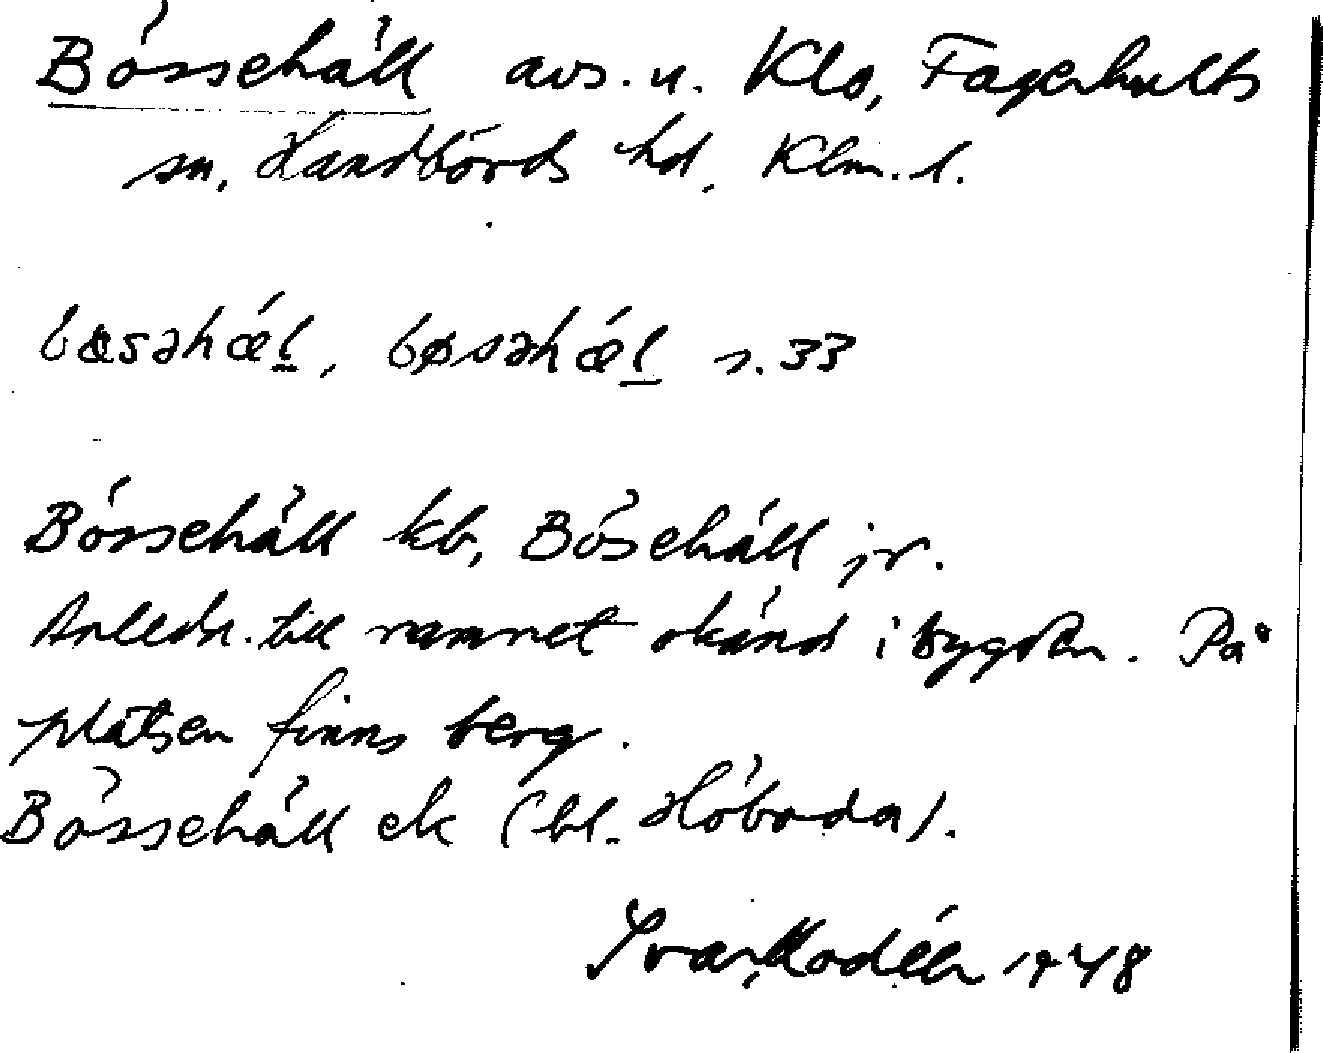 Bössehäll avs. u. Klo, Fagerhults
sn, Handbörds hd, Klm. l.
bøsəhæl, bøsəhæl s. 33
Bössehäll kb, Böschäll jr.
Anledn. till namnet okänd i bygden. På
platsen finns berg.
Bössehäll ek (bl. Högboda).
Ivar Modéer 1948